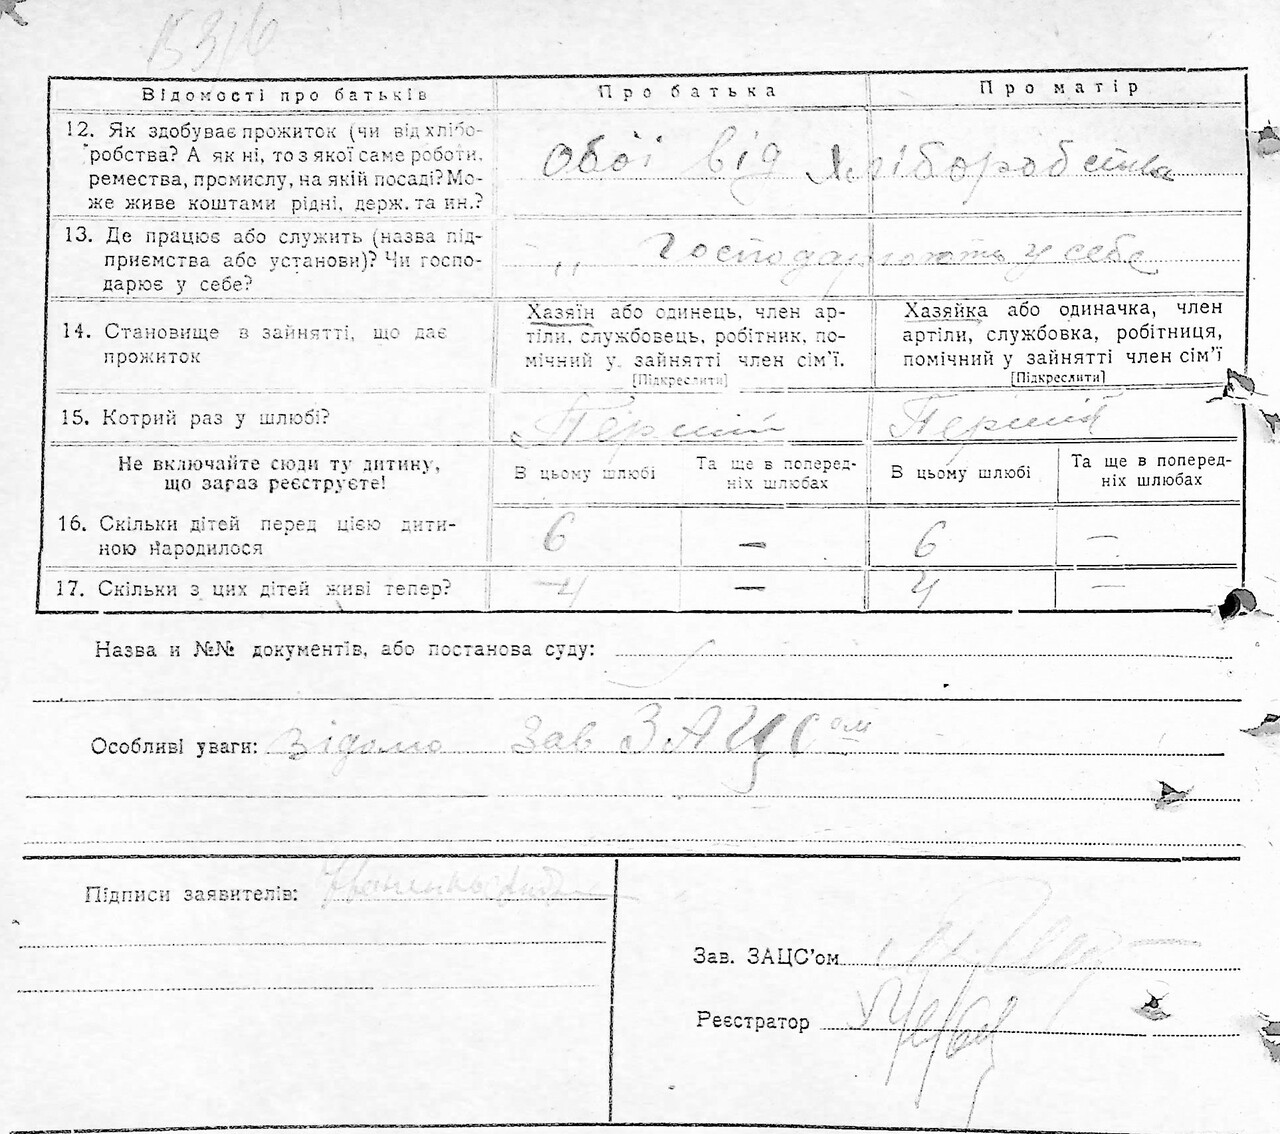 В 3/6
Відомості про батьків
Про батька
Про матір
12. Як здобуває прожиток (чи від хлібо-
робства? А як ні, то з якої саме роботи,
ремества, промислу, на якій посаді? Мо-
же живе коштами рідні, держ. та ин.?
Обоі від хліборобства
13. Де працює або служить (назва під-
приємства або установи)? Чи госпо-
дарює у себе?
,, Господарюють у себе
14. Становище в зайнятті, що дає
прожиток
Хазяїн або одинець, член ар-
тіли, службовець, робітник, по-
мічний у зайнятті член сім'ї.
[Підкреслити]
Хазяйка або одиначка, член
артіли, службовка, робітниця,
помічний у зайнятті член сім'ї
[Підкреслити]
15. Котрий раз у шлюбі?
Перший
Перший
Не включайте сюди ту дитину,
що зараз реєструєте!
В цьому шлюбі
Та ще в поперед-
ніх шлюбах
В цьому шлюбі
Та ще в поперед-
ніх шлюбах
16. Скільки дітей перед цією дити-
ною народилося
6 — 6 —
17. Скільки з цих дітей живі тепер?
4 — 4 —
Назва и №№ документів, або постанова суду:
Особливі уваги: Відомо Зав ЗАЦСом
Підписи заявителів:
Зав. ЗАЦС'ом
Реєстратор